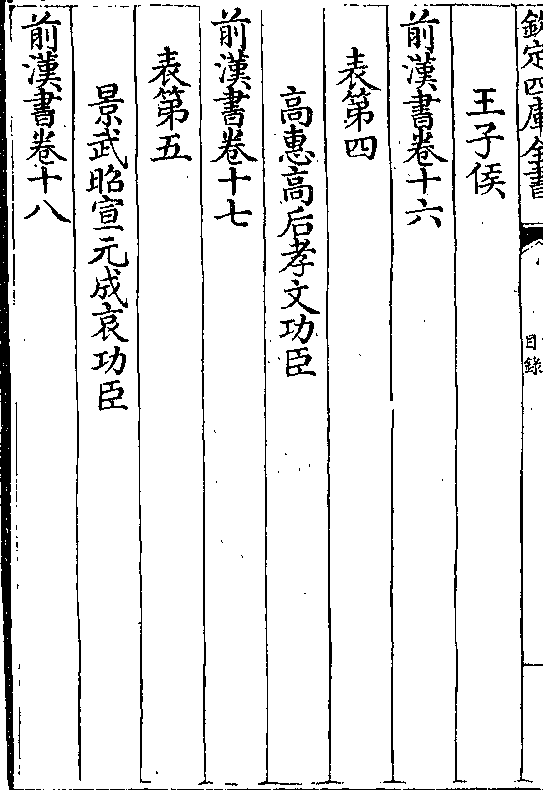 欽定四庫全書
目錄
王子侯
前漢書卷十六
表第四
高惠高后孝文功臣
前漢書卷十七
表第五
景武昭宣元成哀功臣
前漢書卷十八